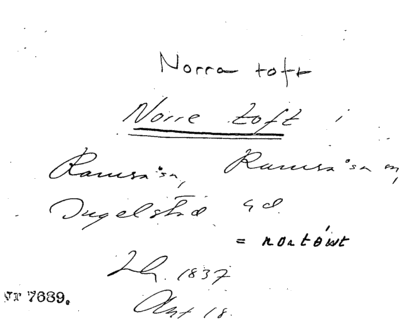 Norra toft
Norre toft i
Ramsåsa, Ramsåsa sn,
Ingelstad hd.
= nortöwt
Lh. 1837
Akt 18.
NT 7639.